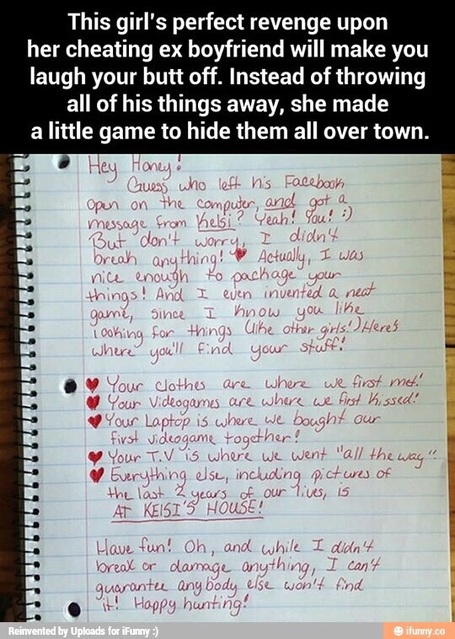 This girl's perfect revenge upon
her cheating ex boyfriend will make you
laugh your butt off. Instead of throwing
all of his things away, she made
a little game to hide them all over town.
Hey Honey!
Guess who left his Facebook
open on the computer, and got a
message from Kelsi? Yeah! You! :)
But don't worry, I didn't
break anything! ♥ Actually, I was
nice enough to package your
things! And I even invented a neat
game, since I know you like
looking for things (like other girls!) Here's
where you'll find your stuff!
♥ Your clothes are where we first met!
♥ Your Videogames are where we first kissed!
♥ Your Laptop is where we bought our
first videogame together!
♥ Your T.V is where we went "all the way".
♥ Everything else, including pictures of
the last 2 years of our lives, is
AT KELSI'S HOUSE!
Have fun! Oh, and while I didn't
break or damage anything, I can't
guarantee anybody else won't find
it! Happy hunting!
Reinvented by Uploads for iFunny :)
ifunny.co